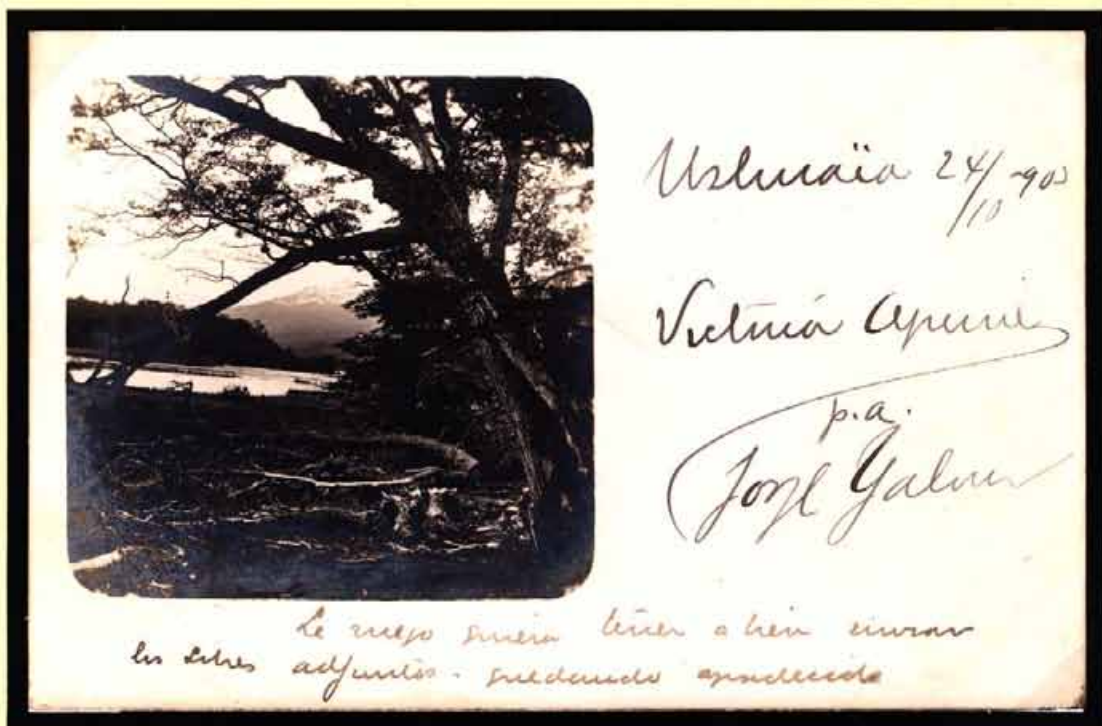 Ushuaïa 24/10 -903
Victoria
p.a.
Jorge
Le ruego quiera tener a bien enviar
los sobres adjuntos - quedando agradecido